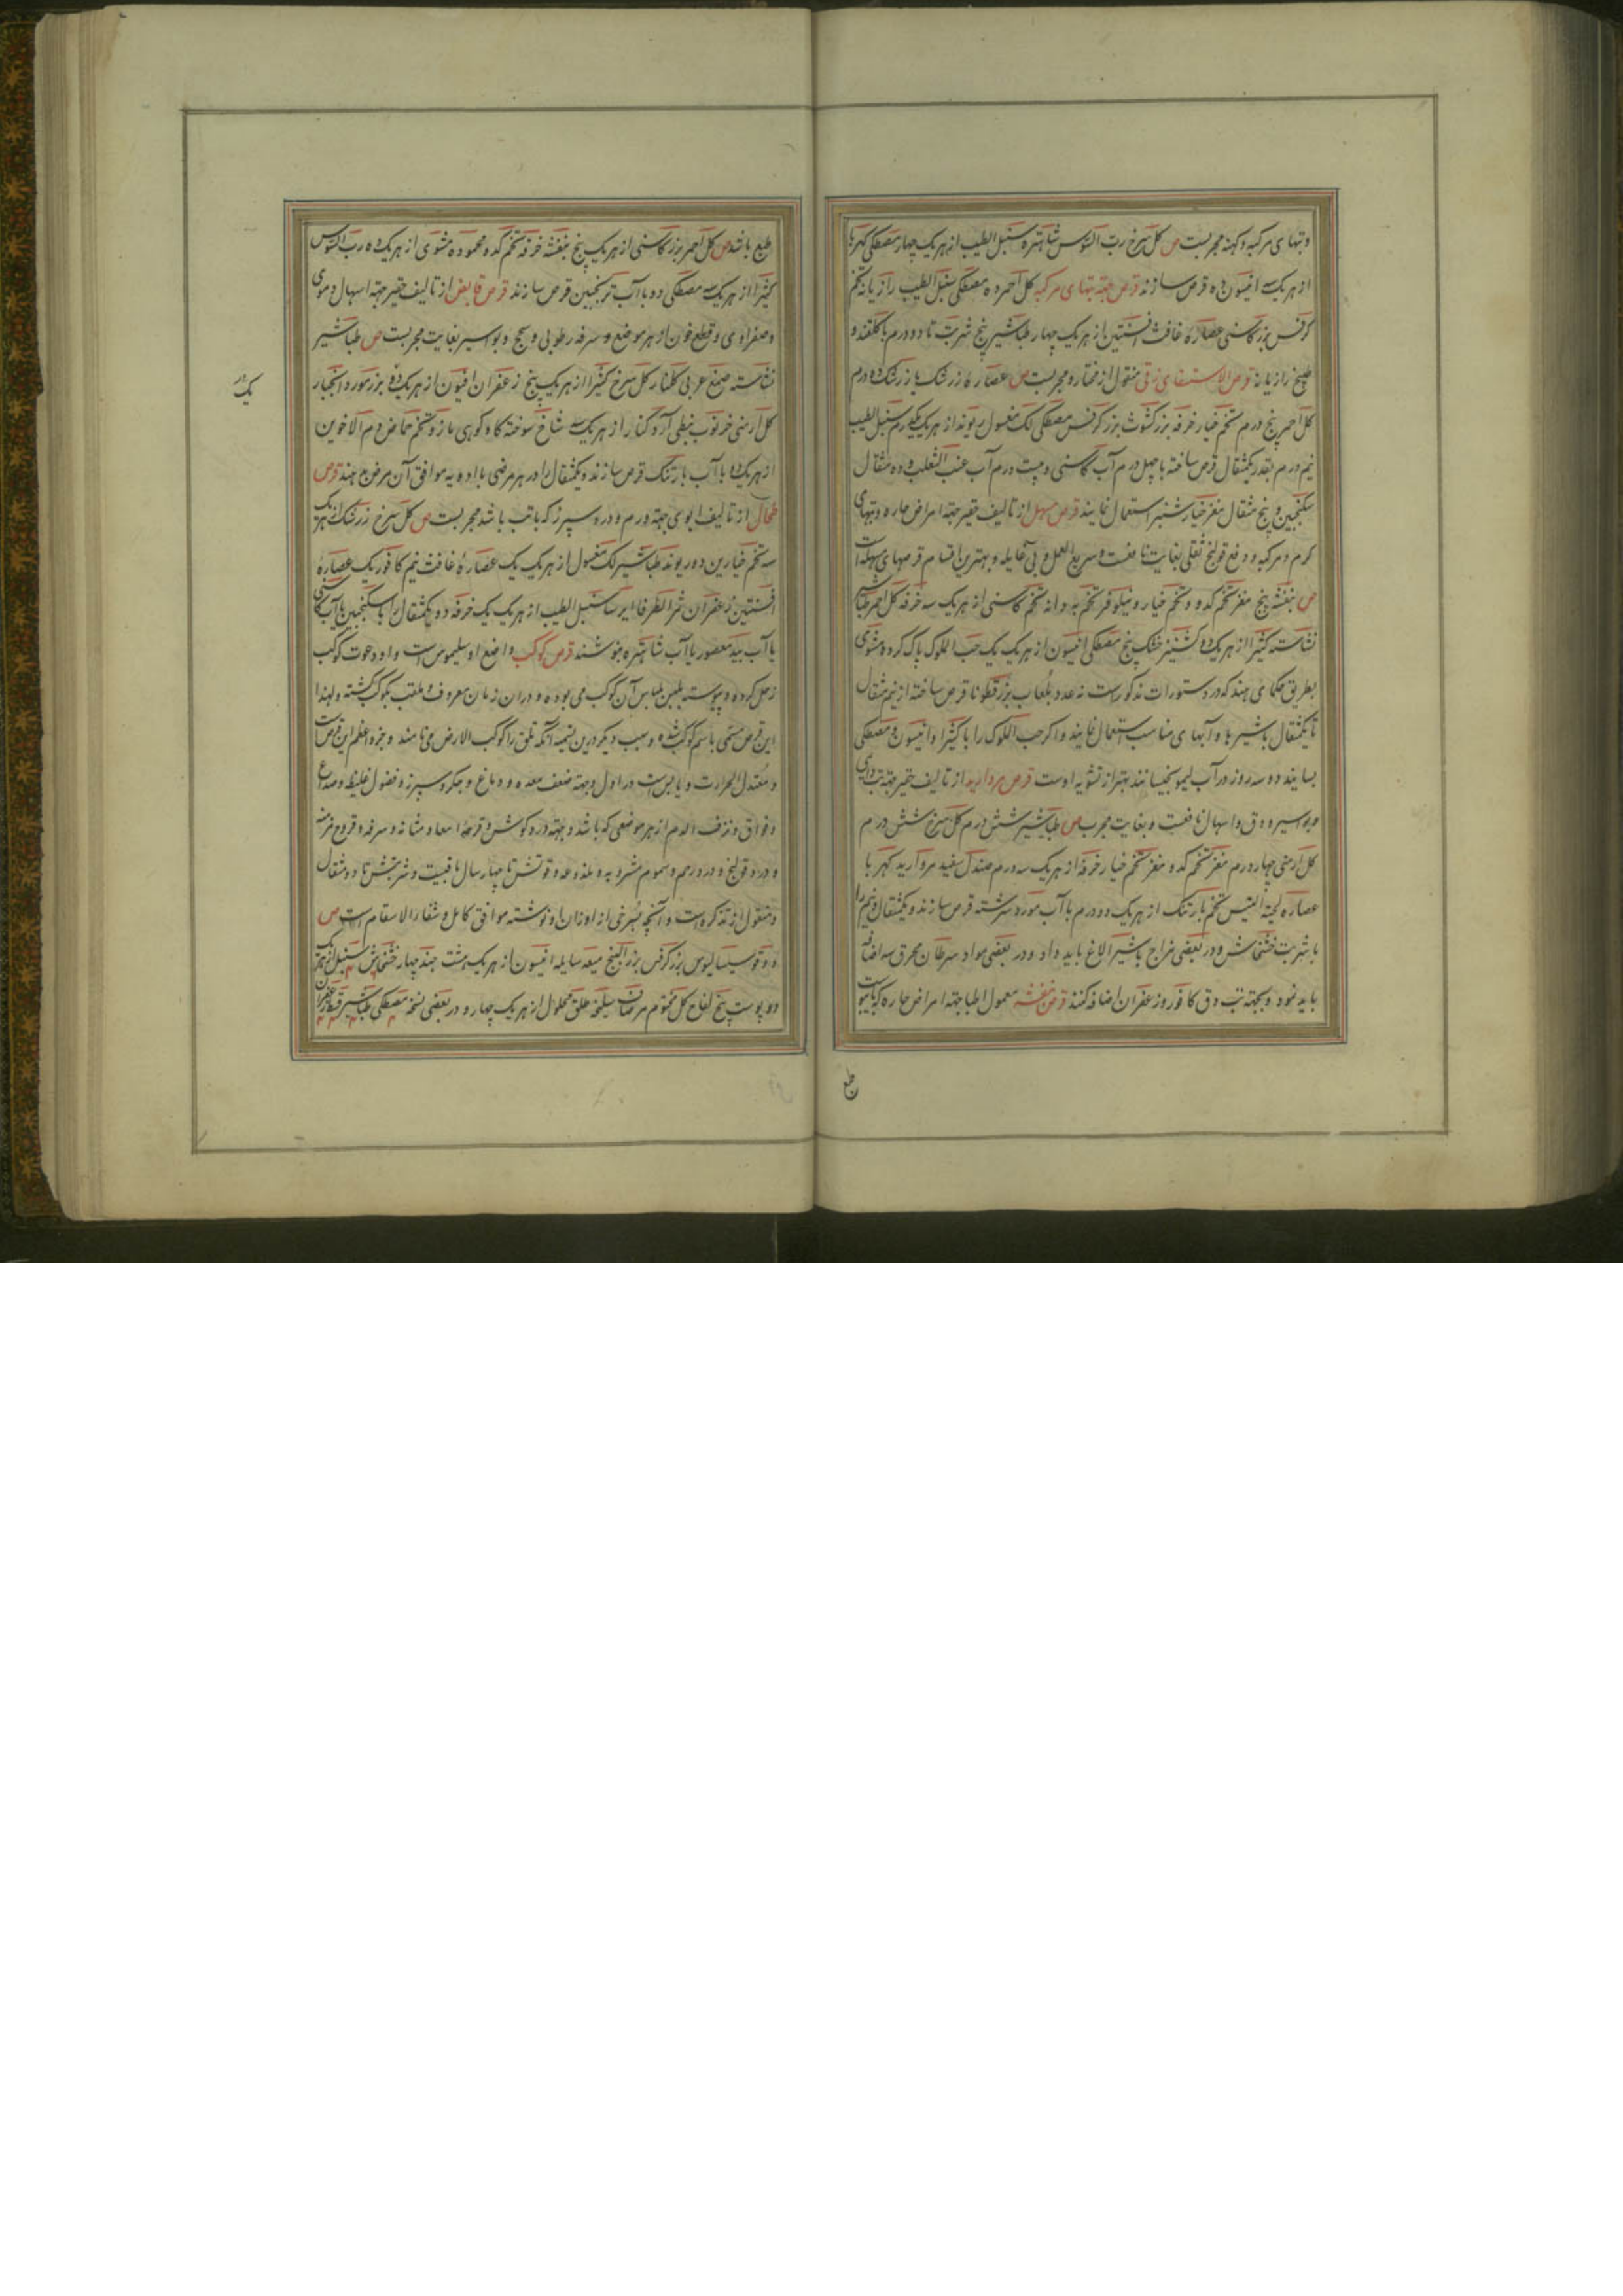 و تبهای مرکبه و کهنه مجربست ص کل سرخ رب السوس شاهتره سنبل الطیب از هر یک چهار مصطکی کهربا
از هر یک سه افیون ده قرص سازند قرص جهته تبهای مرکبه کل احمر ده مصطکی سنبل الطیب رازیانه تخم
کرفس بزر کاسنی عصاره غافث افسنتین از هر یک چهار طباشیر پنج شربت تا دو درم با کلقند و
طبیخ رازیانه قرص الاستسقای زقی منقول از مختار و مجربست ص عصاره زرشک یا زرشک ده درم
کل احمر پنج درم تخم خیار خرفه بزر کشوث بزر کرفس مصطکی لک مغسول ریوند از هر یک یکدرم سنبل الطیب
نیم درم بقدر یکمثقال قرص ساخته با چهل درم آب کاسنی و بیست درم آب عنب الثعلب و ده مثقال
سکنجبین و پنج مثقال مغز خیار شنبر استعمال نمایند قرص مسهل از تالیف حقیر جهته امراض حاره و تبهای
کرم و مرکبه و دفع قولنج ثفلی بغایت نافعست و سریع العمل و بی غایله و بهترین اقسام قرصهای مسهله است
ص بنفشه پنج مغز تخم کدو و تخم خیار و نیلوفر تخم به دانه تخم کاسنی از هر یک سه خرفه کل احمر طباشیر
نشاسته کثیرا از هر یک دو کشنیز خشک پنج مصطکی افیسون از هر یک یک حب الملوک پاک کرده مشوی
بطریق حکمای هند که در دستورات مذکور است نه عدد بلعاب بزر قطونا قرص ساخته از نیم مثقال
تا یکمثقال با شیرها و آبهای مناسب استعمال نمایند و اکر حب الملوک را با کثیرا و انیسون و مصطکی
بسایند و سه روز در آب لیمو بخیسانند بهتر از تشویه اوست قرص مروارید از تالیف حقیر جهته تب دائمی
و بواسیر و دق و اسهال نافعست و بغایت مجرب ص طباشیر شش درم کل سرخ شش درم
کل ارمنی چهار درم مغز تخم کدو مغز تخم خیار خرفه از هر یک سه درم صندل سفید مروارید کهربا
عصاره لحیة التیس تخم بارتنک از هر یک دو درم با آب مورد سرشته قرص سازند و یکمثقال و نیم را
با شربت خشخاش و در بعضی مزاج با شیر الاغ باید داد و در بعضی مواد سرطان محرق سه اضافه
باید نمود و بجهته تب دق کافور و زعفران اضافه کنند قرص بنفشه معمول اطبا جهته امراض حاره که با یبوست
طبع
طبع باشد ص کل احمر بزر کاسنی از هر یک پنج بنفشه خرفه تخم کدو محموده مشوی از هر یک ده رب السوس
کثیرا از هر یک سه مصطکی دو با آب ترنجبین قرص سازند قرص قابض از تالیف حقیر جهته اسهال دموی
و صفراوی و قطع خون از هر موضع و سرفه رطوبی و سحج و بواسیر بغایت مجربست ص طباشیر
نشاسته صمغ عربی کلنار کل سرخ کثیرا از هر یک پنج زعفران افیون از هر یک دو بزر مورد انجبار
یک
کل ارمنی خرنوب نبطی آرد کنار از هر یک سه شاخ سوخته کاو کوهی مازو تخم حماض دم الاخوین
از هر یک ده با آب بارتنک قرص سازند و یکمثقال در هر مرضی با ادویه موافق آن مرض دهند قرص
طحال از تالیف ابوی جهته ورم و درد سپرز که با تب باشد مجربست ص کل سرخ زرشک از هر یک
سه تخم خیارین دو ریوند طباشیر لک مغسول از هر یک یک عصاره غافث نیم کافور یک عصاره
افسنتین زعفران ثمر الطرفا ایرسا سنبل الطیب از هر یک یک خرفه دو یکمثقال را با سکنجبین یا آب کاسنی
یا آب بید معصور یا آب شاهتره بنوشند قرص کوکب واضع او سلیموس است و او دعوت کوکب
زحل کرده و پیوسته بلبس لباس آن کوکب می بوده و در آن زمان معروف و ملقب بکوکب کشته و لهذا
این قرص مسمی باسم کوکب شده و سبب دیکر درین تسمیه آنکه طلق را کوکب الارض می نامند و جزو اعظم این قرص است
و معتدل الحرارت و یابس است در اول و جهته ضعف معده و دماغ و جکر و سپرز و فضول غلیظ و صداع
و فواق و نزف الدم از هر موضعی که باشد و جهته درد کوش و قرحه امعا و مثانه و سرفه و قروح مزمنه
و درد قولنج و درد رحم و سموم مشروبه و ملذوعه و قوتش تا چهار سال باقیست و شربتش تا دو مثقال
و منقول از تذکره است و آنچه بسرخی از اوزان او نوشته موافق کامل و شفاء الاسقام است ص
دوقو سیسالیوس بزر کرفس بزر البنج میعه سایله انیسون از هر یک هشت جند چهار خشخاش سنبل از هر یک
دو پوست بیخ لفاح کل مختوم مر صاف سلیخه طلق محلول از هر یک چهار و در بعضی نسخه مصطکی طباشیر قسط زعفران